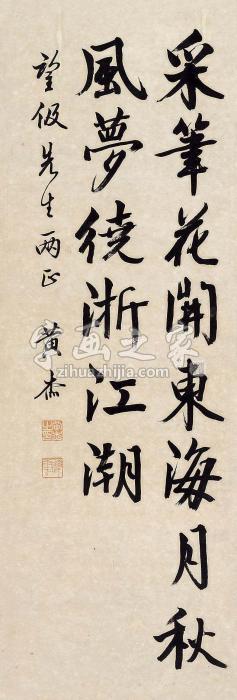 采筆花開東海月秋
風夢繞浙江潮
望伋先生兩正
黃杰
字画之家
zihuazhijia.com